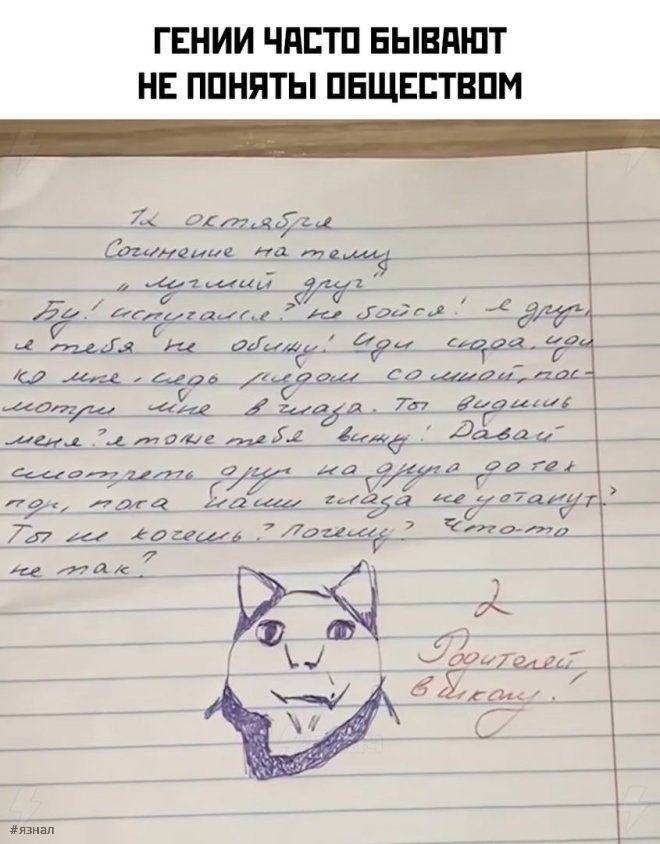 ГЕНИИ ЧАСТО БЫВАЮТ
НЕ ПОНЯТЫ ОБЩЕСТВОМ
12 октября
Сочинение на тему
„лучший друг"
Бу! испугался? не бойся! я друг,
я тебя не обижу! Иди сюда, иди
ко мне, сядь рядом со мной, пос-
мотри мне в глаза. Ты видишь
меня? я тоже тебя вижу! Давай
смотреть друг на друга до тех
пор, пока наши глаза не устанут?
Ты не хочешь? Почему? Что-то
не так?
2
Родителей
в школу!
#язнал